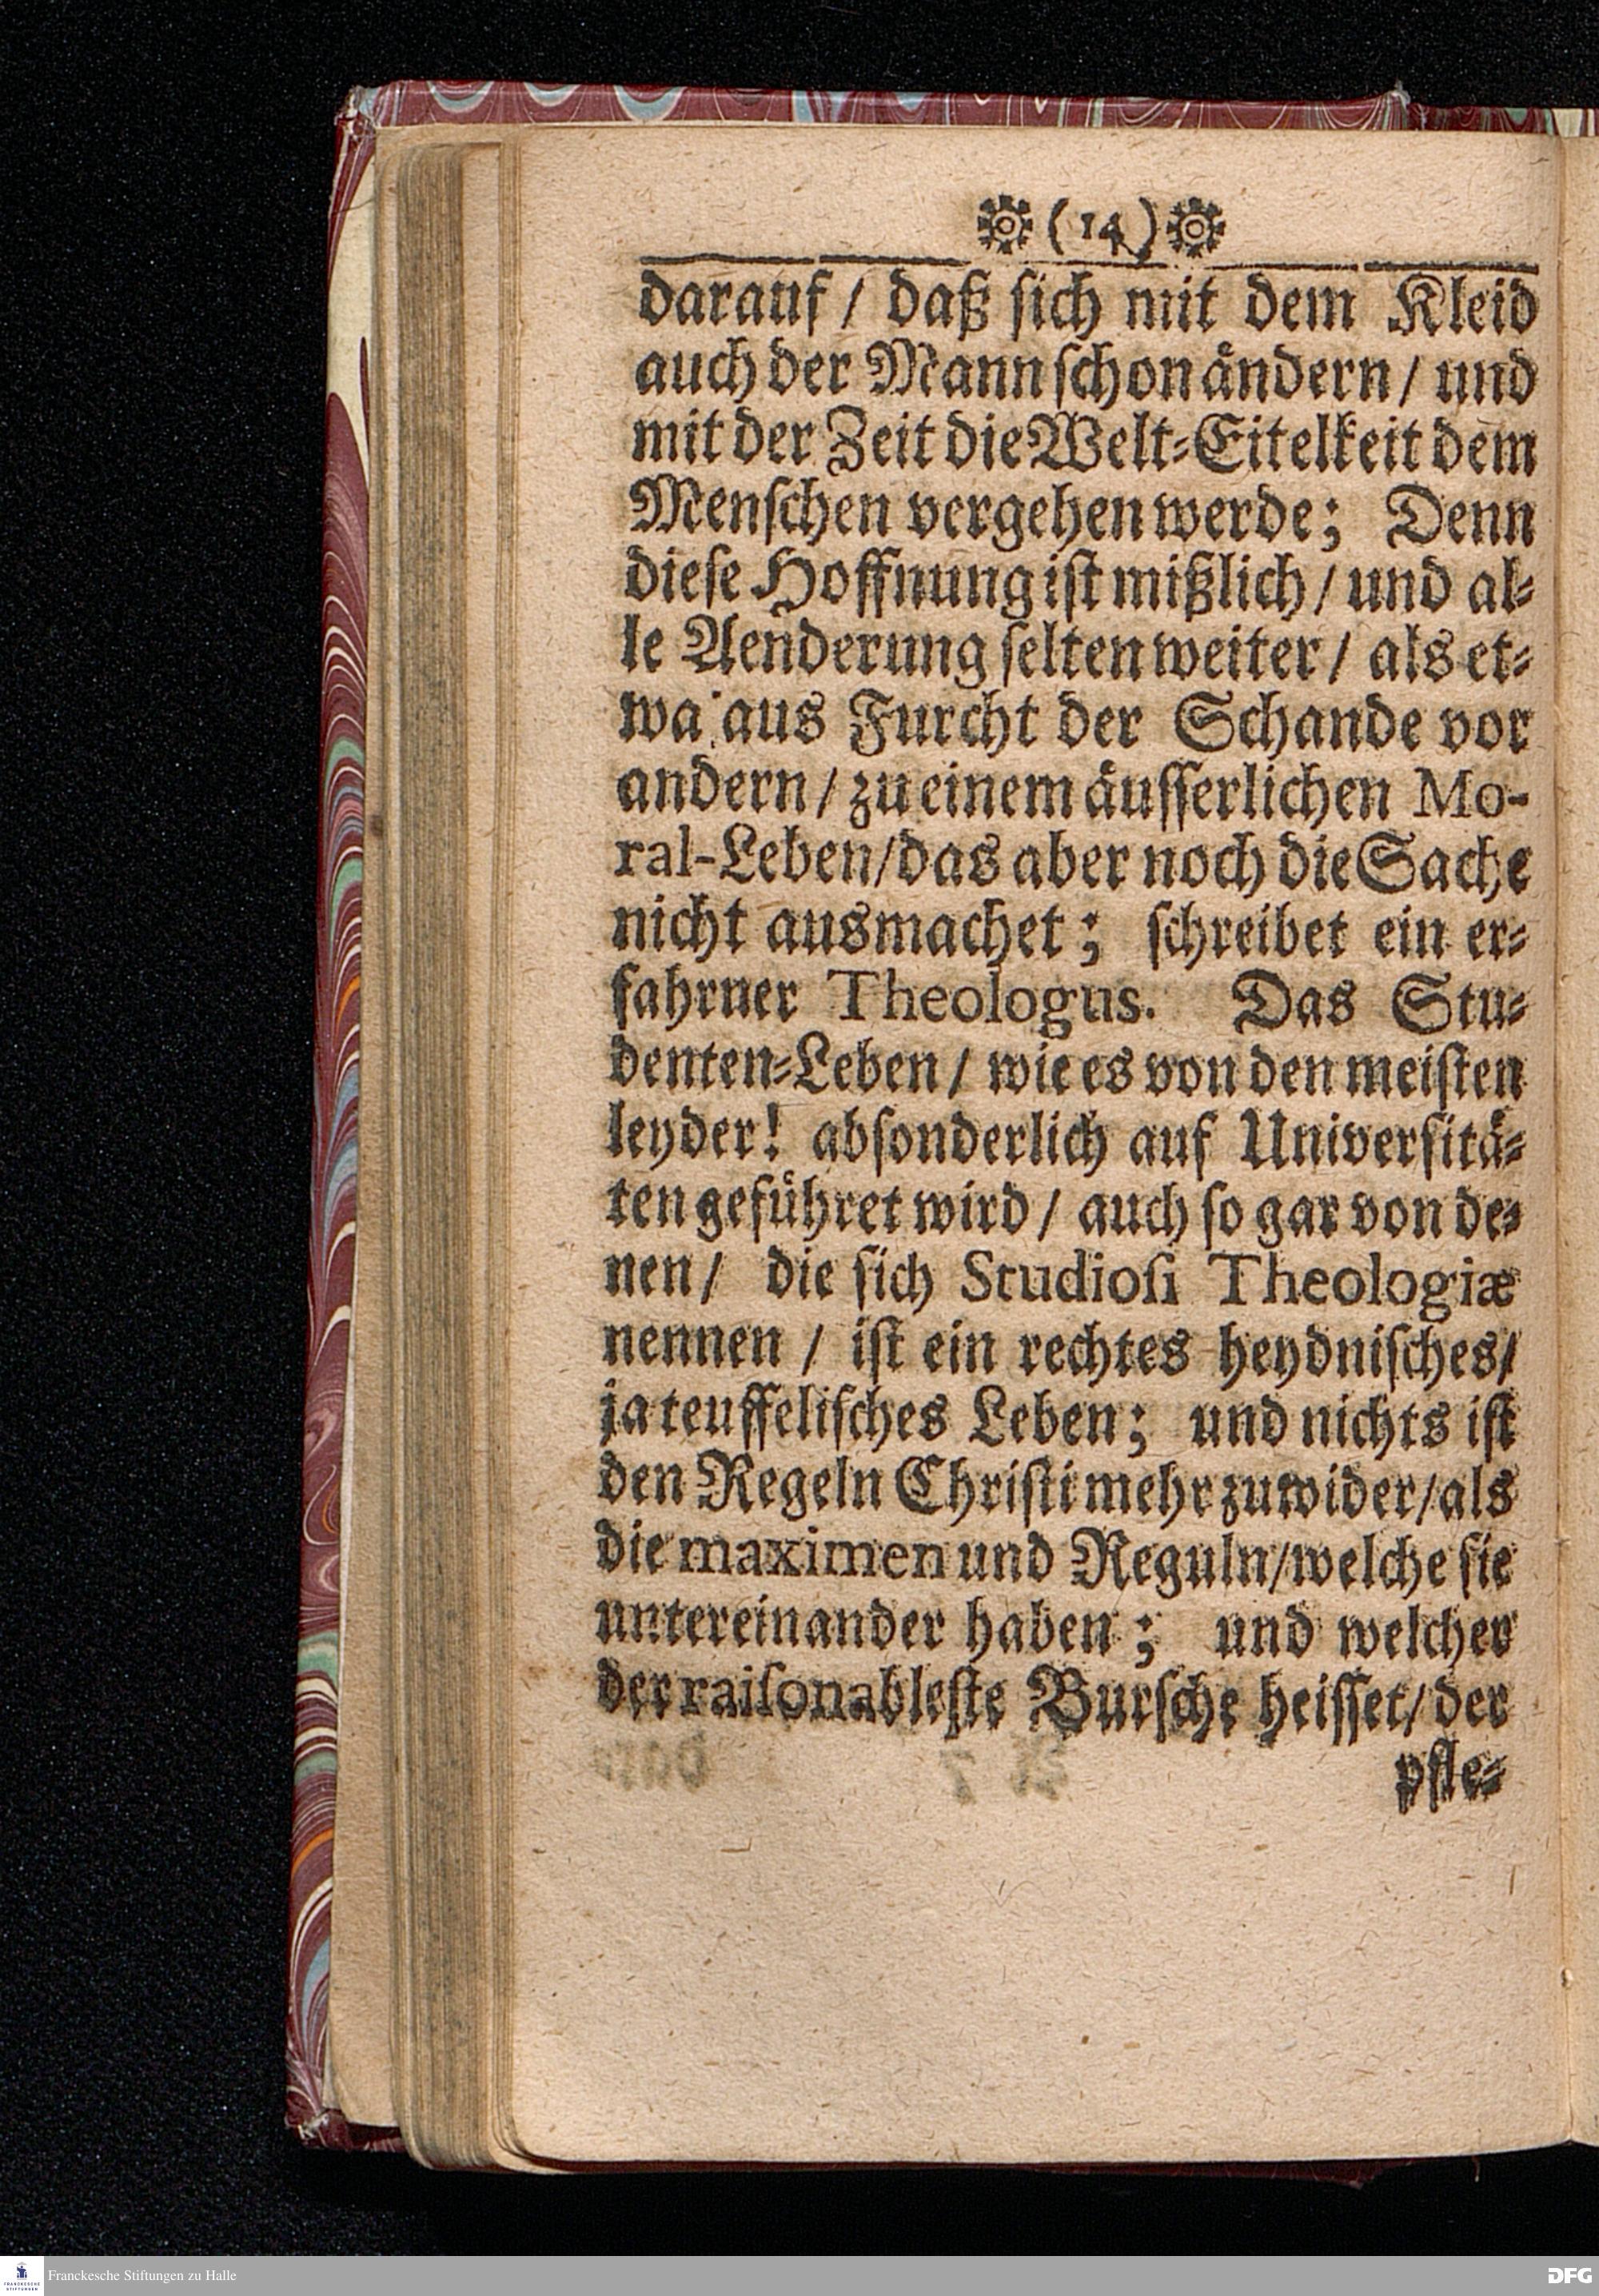 (14)
darauf / daß ſich mit dem Kleid
auch der Mann ſchon aͤndern / und
mit der Zeit die Welt-Eitelkeit dem
Menſchen vergehen werde; Denn
dieſe Hoffnung iſt mißlich / und al-
le Aenderung ſelten weiter / als et-
wa aus Furcht der Schande vor
andern / zu einem aͤuſſerlichen Mo-
ral-Leben / das aber noch die Sache
nicht ausmachet; ſchreibet ein er-
fahrner Theologus. Das Stu-
denten-Leben / wie es von den meiſten
leyder! abſonderlich auf Univerſitaͤ-
ten gefuͤhret wird / auch ſo gar von de-
nen / die ſich Studioſi Theologiæ
nennen / iſt ein rechtes heydniſches /
ja teuffeliſches Leben; und nichts iſt
den Regeln Chriſti mehr zuwider / als
die maximen und Reguln / welche ſie
untereinander haben; und welcher
der raiſonableſte Burſche heiſſet / der
pfle-
Franckesche Stiftungen zu Halle
FRANCKESCHE STIFTUNGEN
DFG